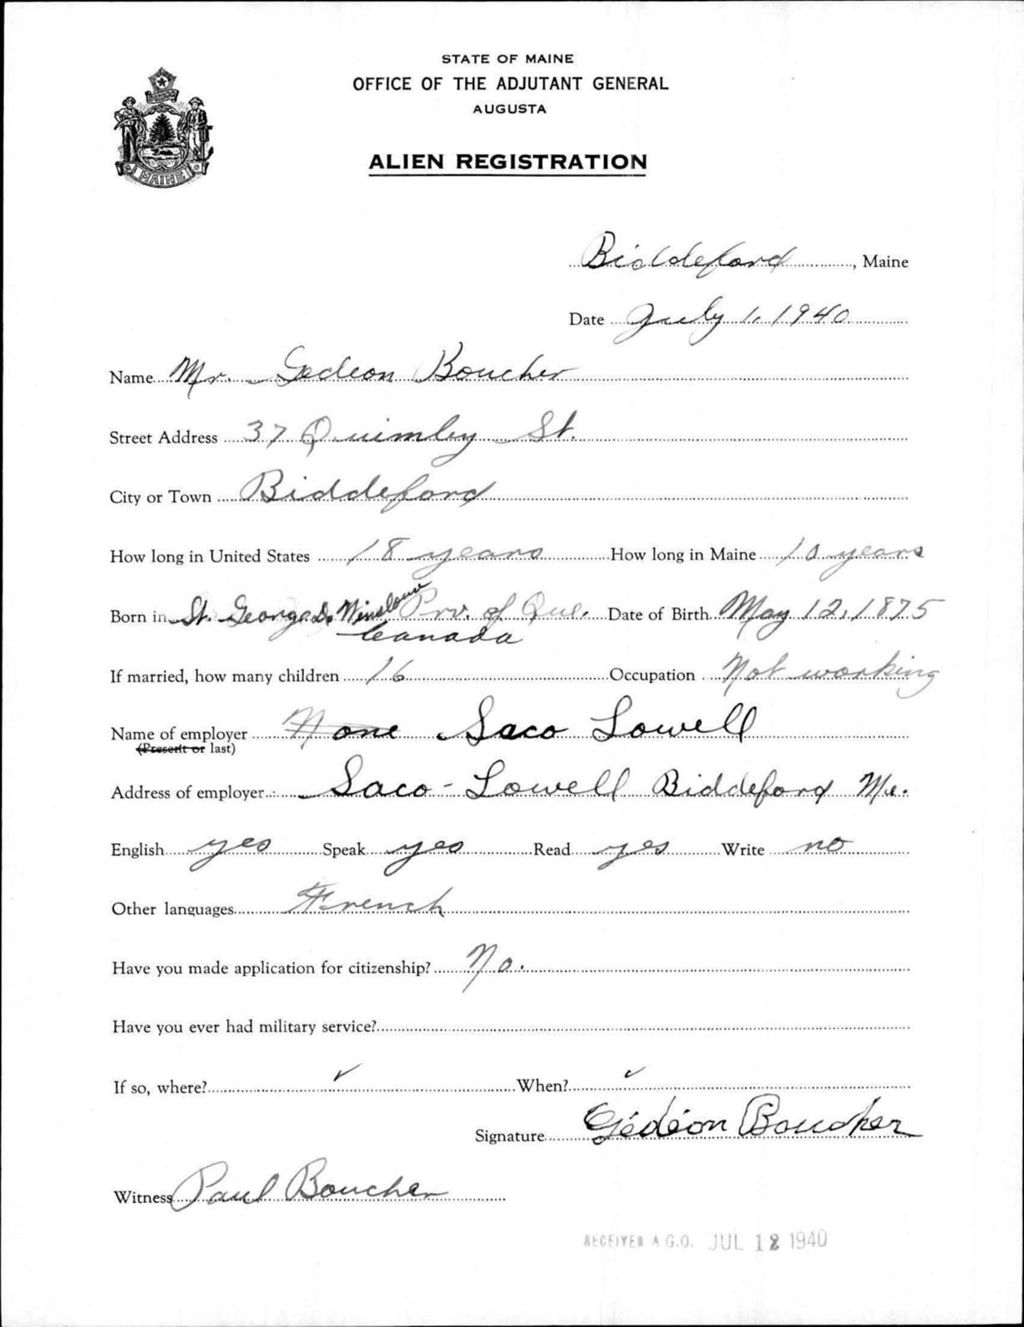 STATE OF MAINE
OFFICE OF THE ADJUTANT GENERAL
AUGUSTA
MAINE
ALIEN REGISTRATION
Biddeford, Maine
Date July 1, 1940
Name Mr. Gedeon Boucher
Street Address 37 Quimley St.
City or Town Biddeford
How long in United States 18 years How long in Maine 10 years
Born in St. George D. Winslow Prv. of Que. Canada Date of Birth May 12, 1875
If married, how many children 16 Occupation Not working
Name of employer None Saco Lowell
(Present or last)
Address of employer Saco-Lowell Biddeford Me.
English yes Speak yes Read yes Write no
Other languages French
Have you made application for citizenship? No.
Have you ever had military service?
If so, where? ✓ When? ✓
Signature Gédéon Boucher
Witness Paul Boucher
RECEIVED A.G.O. JUL 12 1940